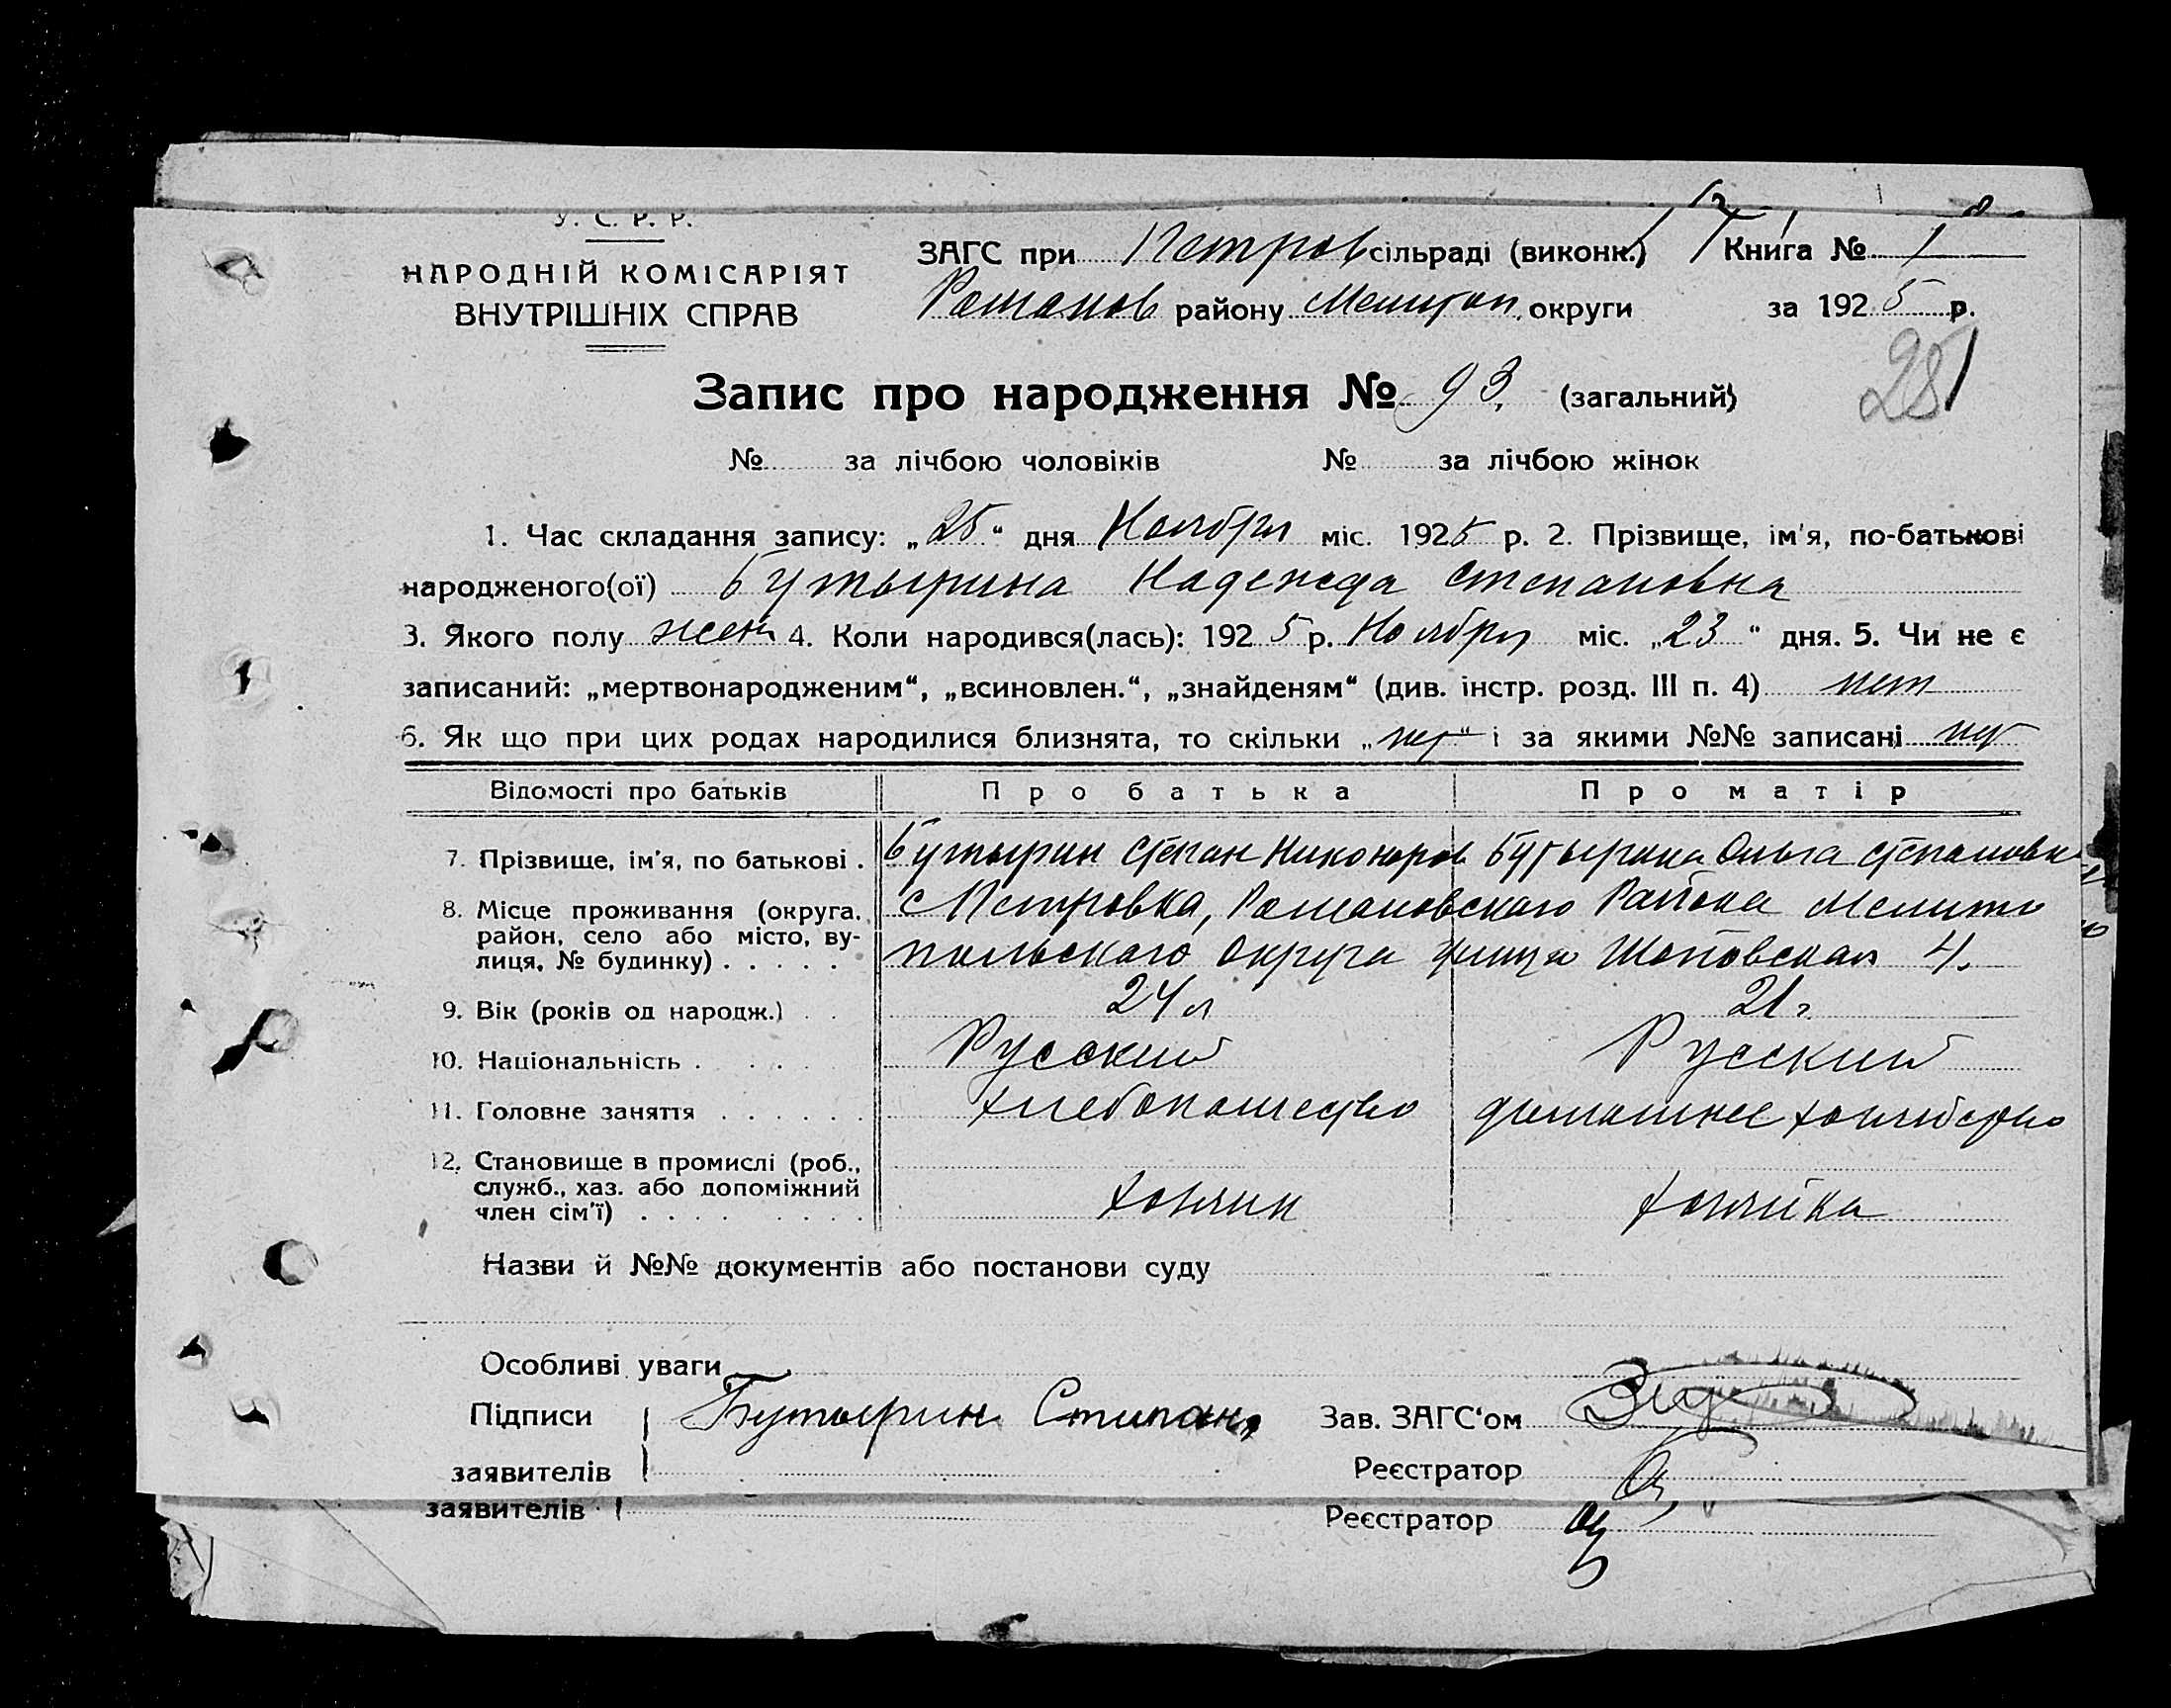 У. С. Р. Р.
НАРОДНІЙ КОМІСАРІЯТ
ВНУТРІШНІХ СПРАВ
ЗАГС при Петров сільраді (виконк.) Книга № 1
Романов району Мелитоп. округи за 1925 р.
281
Запис про народження № 93. (загальний)
№ за лічбою чоловіків № за лічбою жінок
1. Час складання запису: „25“ дня Ноября міс. 1925 р. 2. Прізвище, ім'я, по-батькові
народженого(ої) Бутырина Надежда Степановна
3. Якого полу жен 4. Коли народився(лась): 1925 р. Ноября міс. „23“ дня. 5. Чи не є
записаний: „мертвонародженим“, „всиновлен.“, „знайденям“ (див. інстр. розд. III п. 4) нет
6. Як що при цих родах народилися близнята, то скільки „нет“ і за якими №№ записані нет
Відомості про батьків Про батька Про матір
7. Прізвище, ім'я, по батькові . Бутырин Степан Никоноров Бутырина Ольга Степановн
8. Місце проживання (округа, район, село або місто, вулиця, № будинку) . . . . . с Петровка, Романовскаго Района Мелито
польскаго Округа улица 4.
9. Вік (років од народж.) . . 24 л 21 г.
10. Національність . . . . . Русский Русский
11. Головне заняття . . . . . . Хлебопашество домашнее хозяйство
12. Становище в промислі (роб.,
служб., хаз. або допоміжний
член сім'ї) . . . . . . . . . хозяин хозяйка
Назви й №№ документів або постанови суду
Особливі уваги
Підписи Бутырин Стипан Зав. ЗАГС'ом
заявителів Реєстратор
заявителів Реєстратор